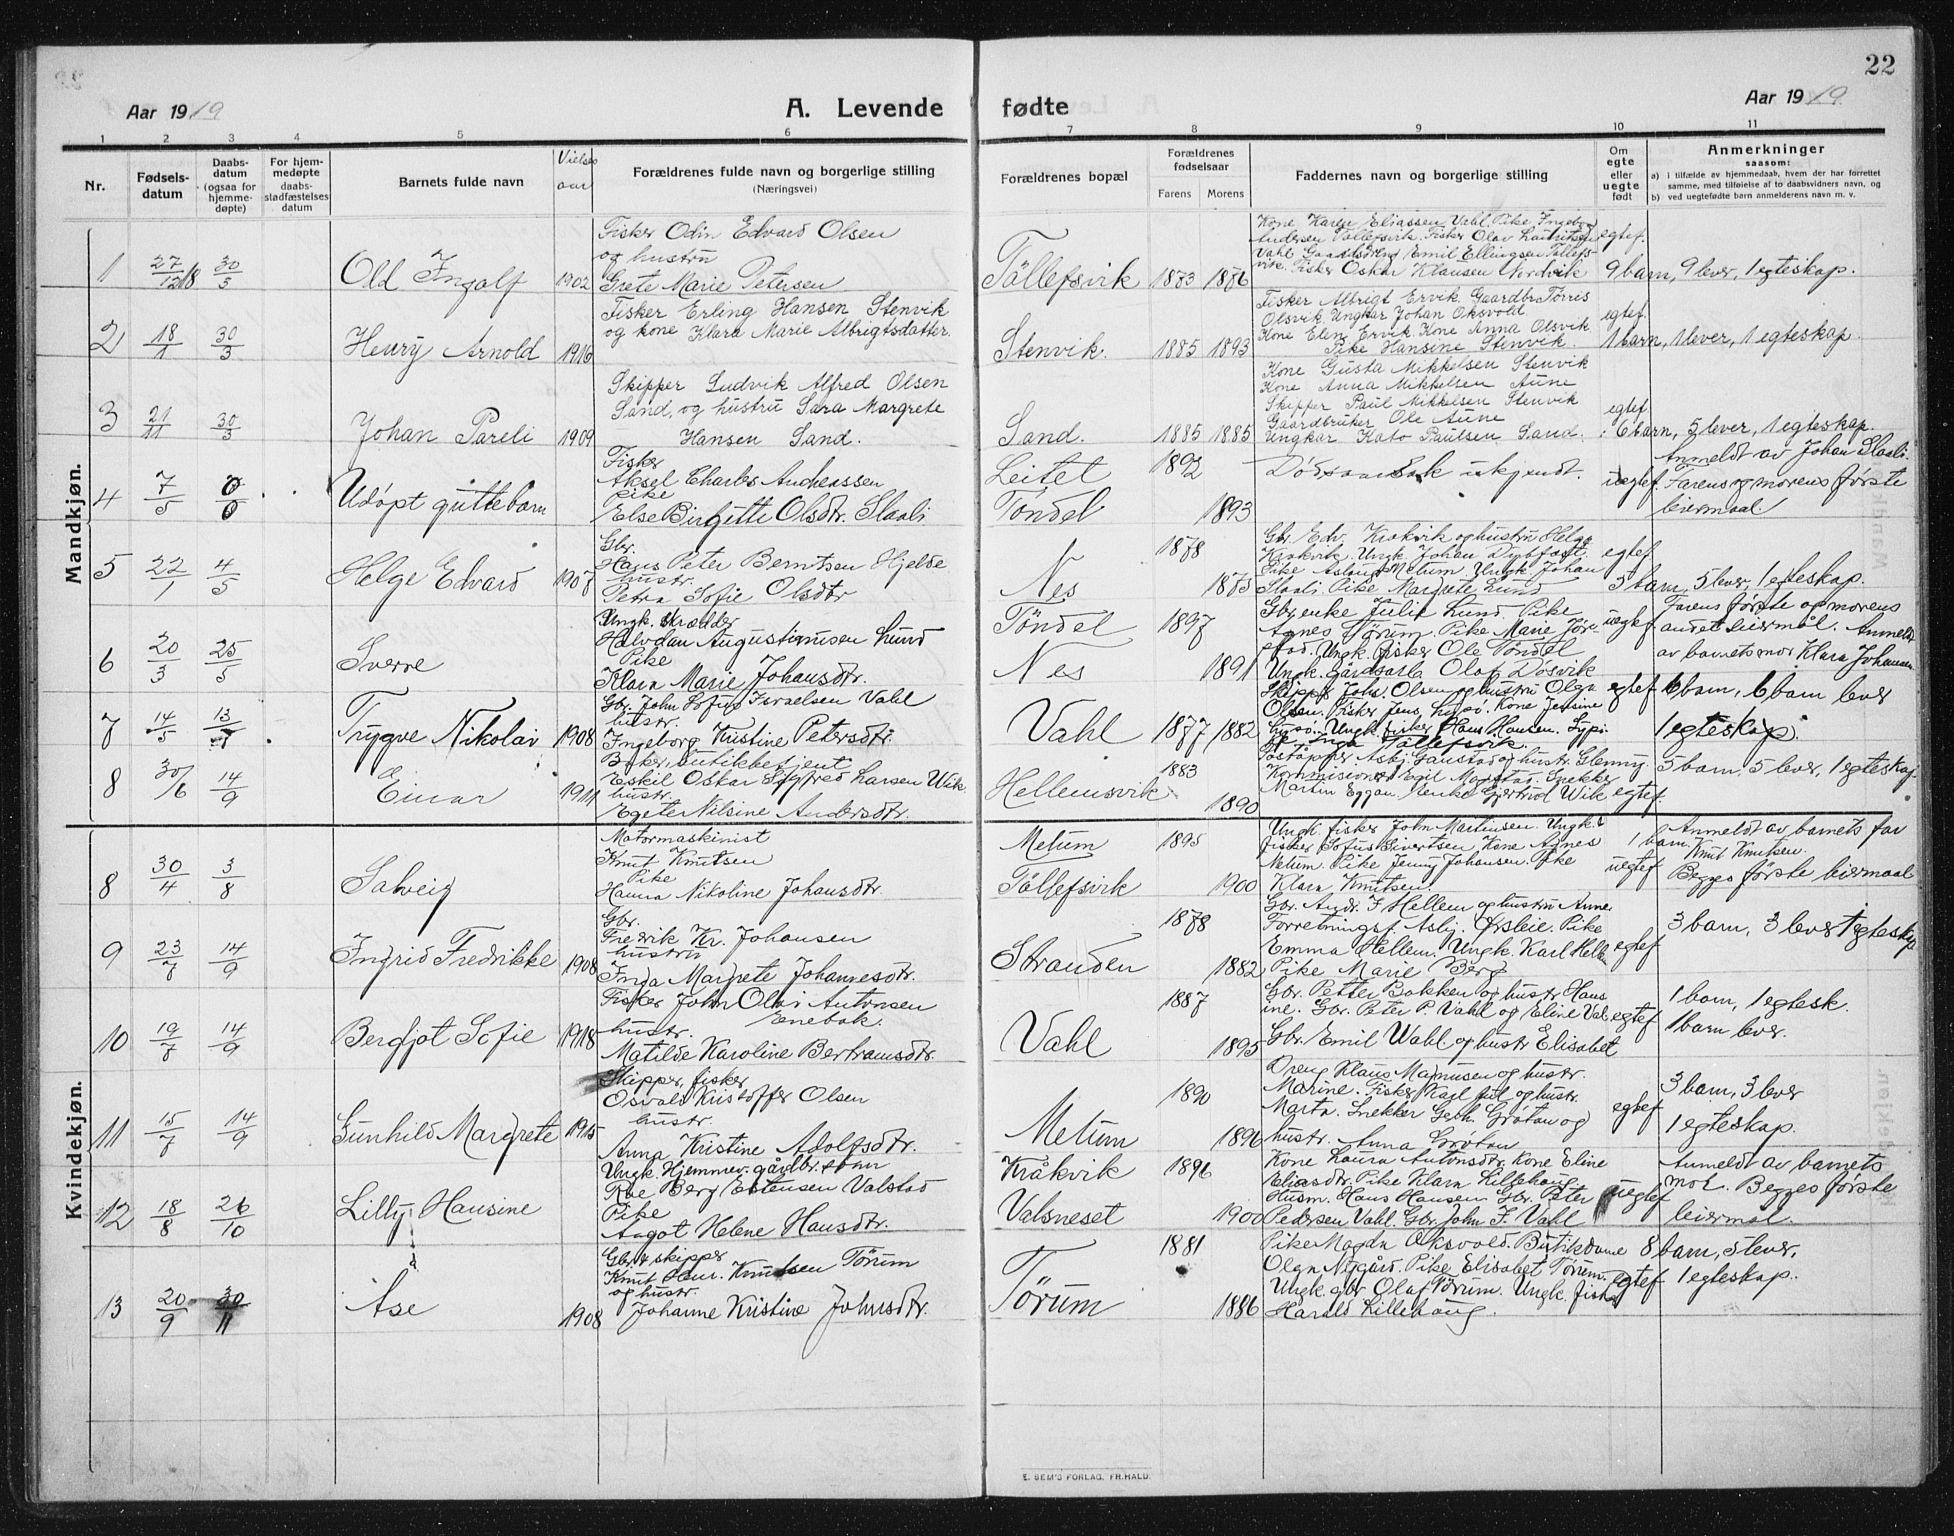 22
Aar 1919
A. Levende fødte
Aar 1919
1 2 3 4 5 6 7 8 9 10 11
Nr.
Fødsels-
datum
Daabs-
datum
(ogsaa for
hjemme-
døpte)
For hjem-
medøpte
daabs-
stadfæstelses
datum
Barnets fulde navn
Vielses
aar
Forældrenes fulde navn og borgerlige stilling
(Næringsvei)
Forældrenes bopæl
Forældrenes
fødselsaar
Farens Morens
Faddernes navn og borgerlige stilling
Om
egte
eller
uegte
født
Anmerkninger
saasom:
a) i tilfælde av hjemmedaab, hvem der har forrettet
samme, med tilføielse af to daabsvidners navn, og
b) ved uegtefødte barn anmelderens navn m. v.
Mandkjøn.
1 27/12 18 30/3 Old Ingolf 1902
Fisker Odin Edvard Olsen
og hustru
Grete Marie Petersen
Tøllefsvik 1873 1876
Kone Karen Eliassen Vahl. Pike Ingebor
Andersen Tøllefsvik. Fisker Olav Lauritsen
Vahl Emil Ellingsen Tøllefs-
vik. Fisker Oskar Klausen Nordvik
egtef.
9 barn, 9 lever, 1 egteskap.
2 18/1 30/3 Henry Arnold 1916
Fisker Erling Hansen Stenvik
og kone Klara Marie Albrigtsdatter.
Stenvik. 1885 1893
Fisker Albrigt Ervik. Gaardbr Tørris
Olsvik Ungkar Johan Oksvold
Kone Elen Ervik Kone Anna Olsvik
Pike Hansine Stenvik.
egtef.
1 barn, 1 lever, 1 egteskap.
3 21/11 30/3 Johan Pareli 1909
Skipper Ludvik Alfred Olsen
Sand, og hustru Sara Margrete
Hansen Sand.
Sand. 1885 1885
Kone Gusta Mikkelsen Stenvik
Kone Anna Mikkelsen Aune
Skipper Paul Mikkelsen Stenvik
Gaardbruker Ole Aune
Ungkar Kato Paulsen Sand.
egtef
6 barn, 5 lever, 1 egteskap.
4 7/5 0/0 Udøpt guttebarn
Fisker
Aksel Charles Andreassen
Pike
Else Birgitte Olsdtr. Slaali
Leitet 1892
Tøndel 1893
Dødsaarsak ukjendt.
uegtef.
Anmeldt av Johan Slaali
Farens og morens første
leiermaal.
5 22/1 4/5 Helge Edvard 1907
Gbr.
Hans Peter Berntsen Hjelde
hustr.
Petra Sofie Olsdtr
Nes 1878 1875
Gbr. Edv. Krokvik og hustru Helga
Krokvik. Ungk. Johan Dybfest.
Pike Aslaug Metum. Ungk Johan
Slaali Pike Margrete Lund
egtef
5 barn, 5 lever, 1 egteskap.
6 20/3 25/5 Sverre
Ungk. Skrædder
Halvdan Augustinusen Lund
Pike
Klara Marie Johansdtr.
Tøndel 1897
Nes 1891
Gbr.enke Julie Lund Pike
Agnes Tørum. Pike Marie Jøre-
stad. Ungk. fisker Ole Tøndel
Ungk. Gårdsarb Olaf Døsvik
uegtef
Farens første og morens
andet leiermål. Anmeldt
av barnets mor Klara Johansen.
7 14/5 13/7 Trygve Nikolai 1908
Gbr. John Sofus Israelsen Vahl
hustr.
Ingeborg Kristine Petersdtr.
Vahl 1877 1882
Skipper Johs. Olsen og hustru Olga
Olsen. Fisker Jens Lysø. Kone Jensine
Lysø. Ungk. fisker Hans Hansen. Lysø.
Inga Tøllefsvik.
egtef
6 barn, 6 barn lever
1 egteskap.
8 30/6 14/9 Einar 1911
Baker, butikbetjent
Eskil Oskar Sigfred Larsen Wik.
hustr.
Egete Nilsine Andersdtr.
Hellemsvik 1883 1890
Postaapner Asbj. Gaustad og hustr. Glenny
Kommisionær Egil Magstad. Snekker
Martin Eggan. enke Gjertrud Wik
egtef.
5 barn, 5 lever, 1 egteskap
Kvindekjøn.
8 30/4 3/8 Solveig
Motormaskinist
Knut Knutsen
Pike
Hanna Nikoline Johansdtr.
Metum 1895
Tøllefsvik 1900
Ungk. fisker John Martinsen. Ungk.
fisker Sofus Sivertsen Kone Agnes
Metum. Pike Jenny Johansen. Pike
Klara Knutsen.
1 barn
uegtef
Anmeldt av barnets far
Knut Knutsen.
Begges første leiermaal
9 23/7 14/9 Ingrid Fredrikke 1908
Gbr.
Fredrik Kr. Johansen
hustru
Inga Margrete Johannesdtr.
Stranden 1878 1882
Gbr. Andr. J Hellem og hustru Anne
Forretningsf. Asbj. Ørsleie. Pike
Emma Hellem. Ungk. Karl Hellem
Pike Marie Berg
egtef
3 barn, 3 lever 1 egteskap
10 19/7 14/9 Bergljot Sofie 1918
Fisker John Olai Antonsen
Enebak.
hustr.
Matilde Karoline Bertramsdtr.
Vahl 1887 1895
Gbr. Petter Bakken og hustr. Hans
ine. Gbr. Peter P. Vahl og Eline Vah
Gbr. Emil Wahl og hustr Elisabet
egtef
1 barn, 1 egtesk.
1 barn lever.
11 15/7 14/9 Gunhild Margrete 1915
Skipper, fisker
Osvald Kristoffer Olsen
hustr.
Anna Kristine Adolfsdtr.
Metum 1890 1896
Dreng Klaus Magnusen og hustr.
Marine. Fisker Karl og hustr.
Marta. Snekker Gerh. Grøtan og
hustr. Anna Grøtan
egtef
3 barn, 3 lever
1 egteskap.
12 18/8 26/10 Lilly Hansine
Ungk. Hjemmev. gårdbr.sønn
Roe Berg Estensen Valstad
Pike
Aagot Helene Hansdtr.
Kråkvik 1896
Valsneset 1900
Kone Laura Antonsdtr. Kone Eline
Eliasdtr. Pike Klara Lillehaug
Husm. Hans Hansen Gbr. Peter
Pedersen Vahl. Gbr. John J. Vahl
uegtef
Anmeldt av barnets
mor. Begges første
leiermål.
13 20/9 30/11 Åse 1908
Gbr. skipper
Knut Knutsen Tørum
og hustr.
Johanne Kristine Johnsdtr.
Tørum 1881 1886
Pike Magda Oksvold. Butikdame
Olga Nygård. Pike Elisabet Tørum.
Ungk. gbr Olaf Tørum. Ungk. fisk
Harald Lillehaug.
egtef
8 barn, 5 lever,
1 egteskap.
E. SEM'S FORLAG, FR.HALD.